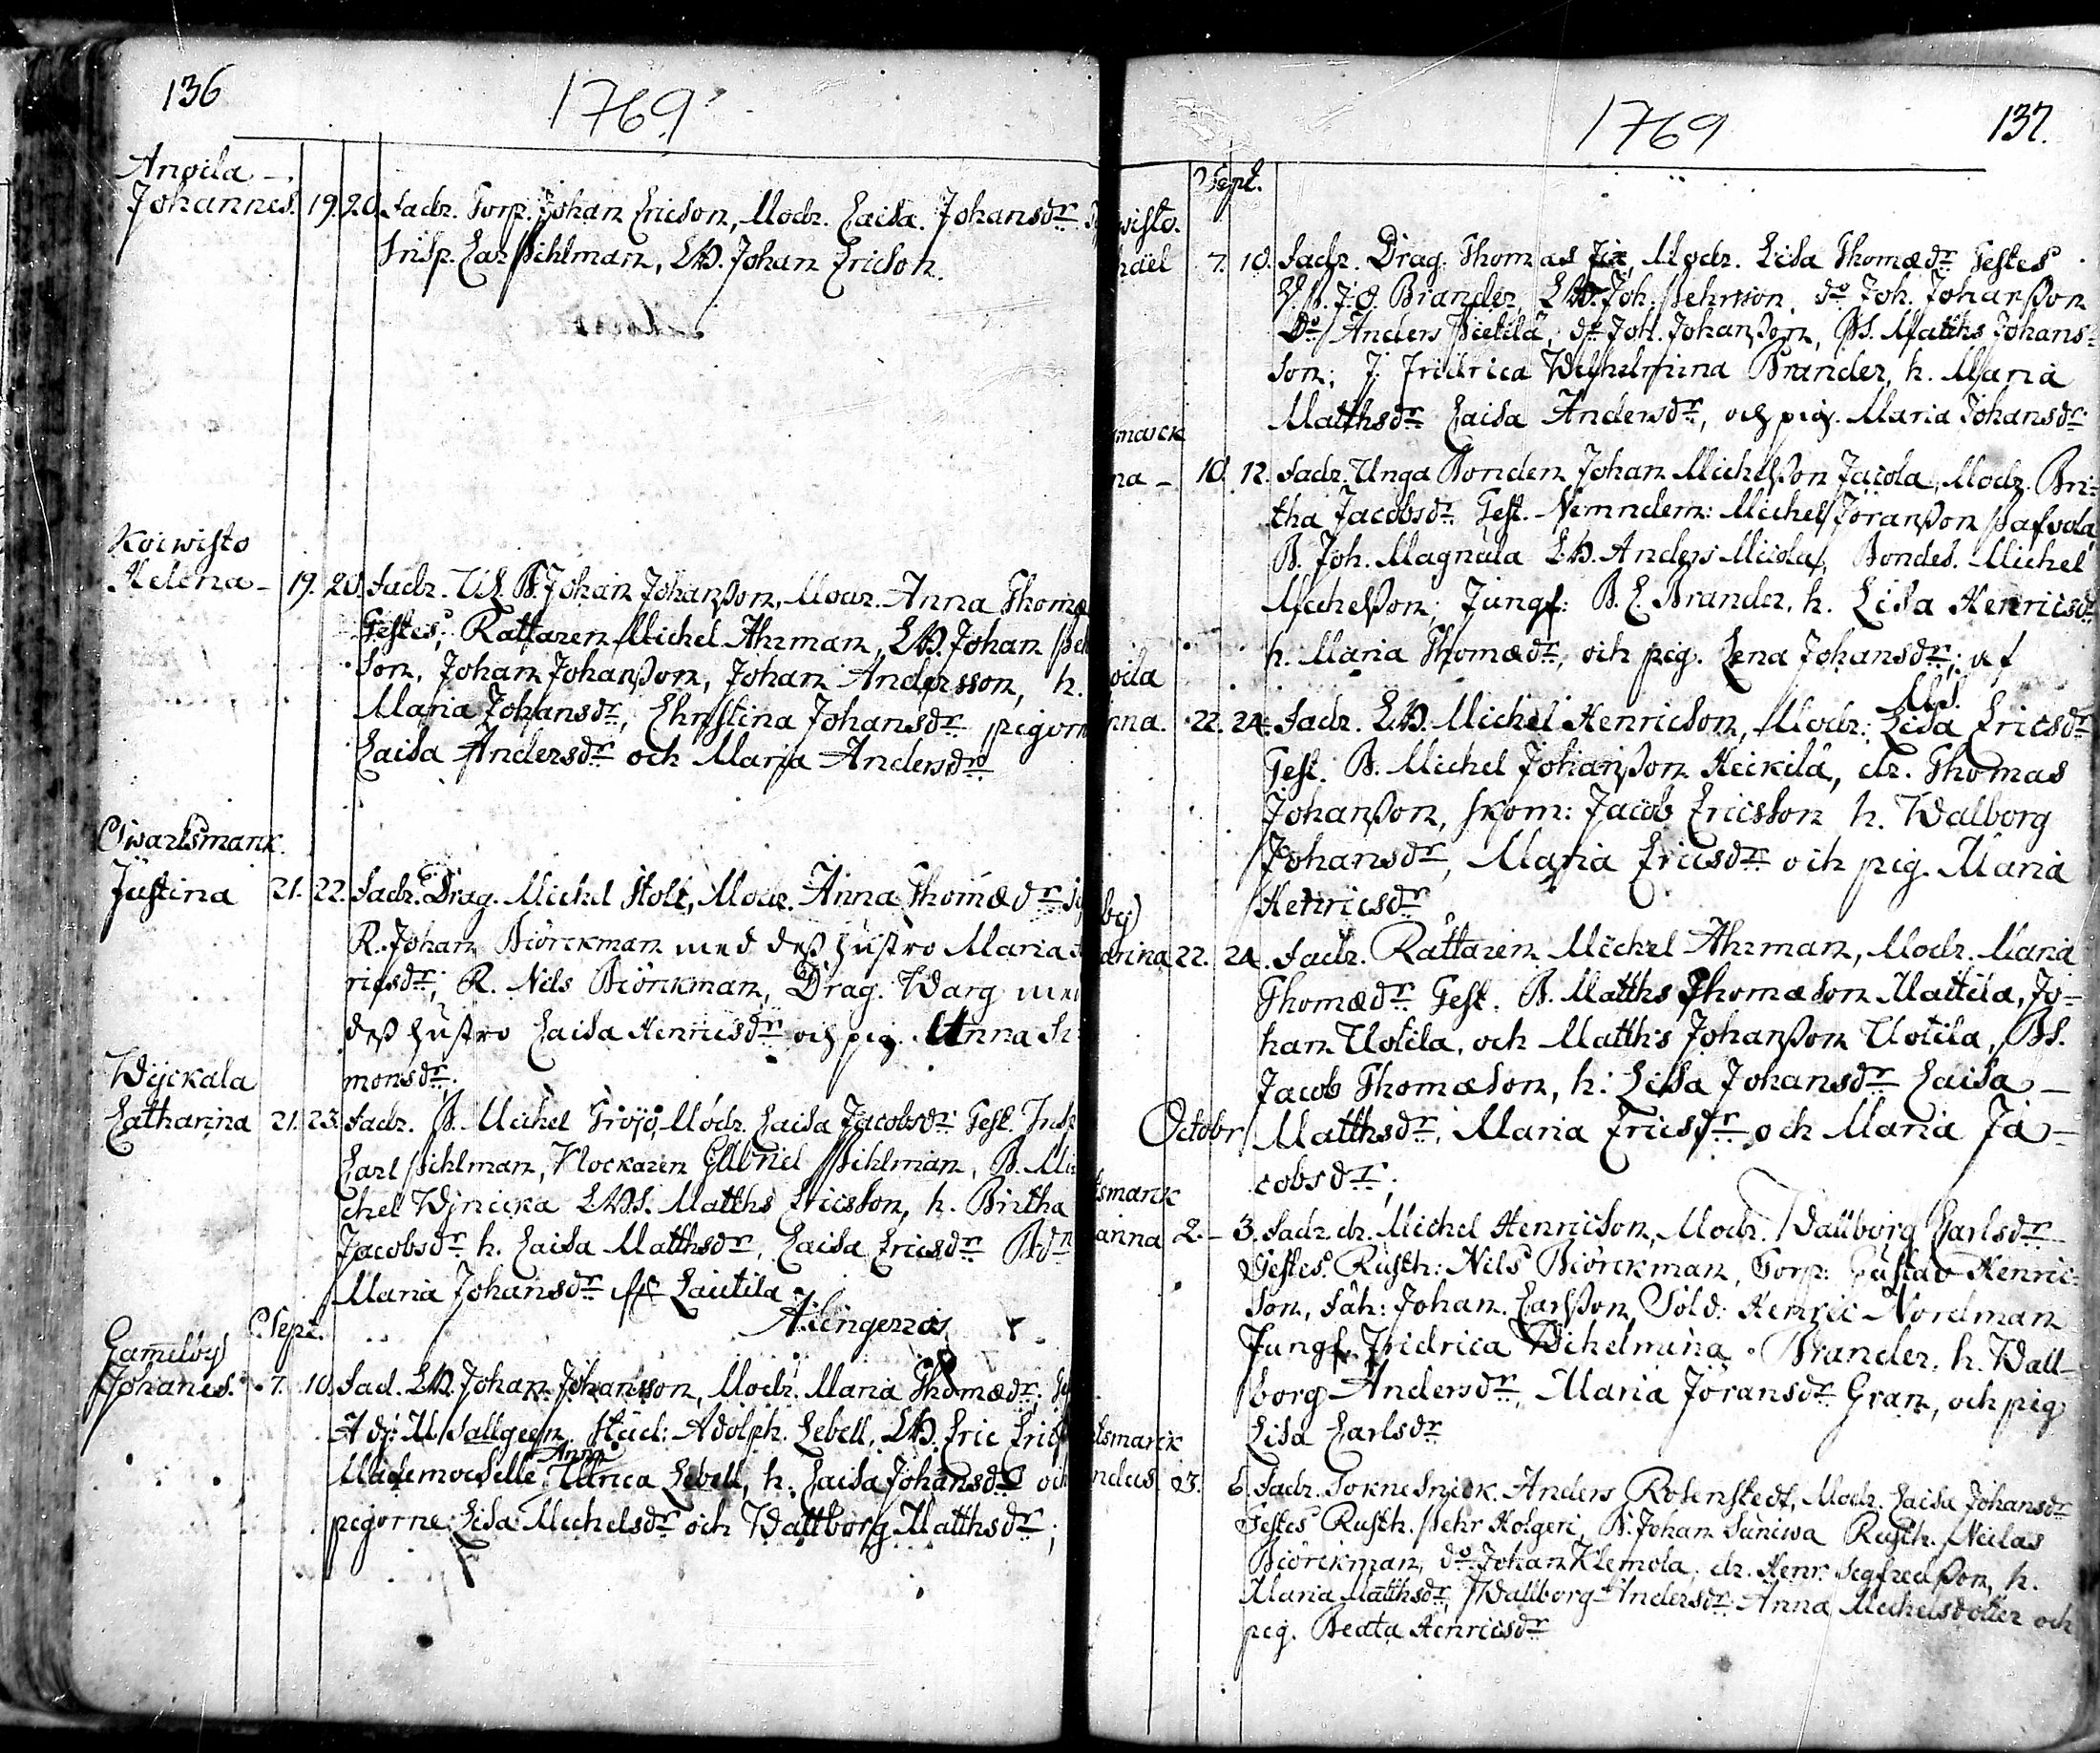 136
1769
Anoila -
Johannes. 19. 20. Fadr. Torp. Johan Ericson, Modr. Caisa Johansdr
Insp. Carl Pihlman, LB. Johan Ericson.
Koiwisto
Helena - 19. 20. Fadr. B. Johan Johanßon, Modr. Anna Thomæ
Testes; Rattaren Michel Ahrman, LB. Johan Peh
son, Johan Johanßon, Johan Andersson, h.
Maria Johansdr, Christina Johansdr pigorn
Caisa Andersdr och Maria Andersdr
Swartsmark
Justina 21. 22. Fadr. Drag. Michel Stolt, Modr. Anna Thomædr
R. Johan Biörckman med deß hustro Maria
ricsdr; R. Nils Biörckman, Drag. Warg med
deß hustro Caisa Henricsdr och pig. Anna Si
monsdr;
Wijckala
Catharina 21. 23. Fadr. B. Michel Tröyö, Modr. Caisa Jacobsdr Test. Insp
Carl Pihlman, Klockaren Gabriel Pihlman, B. Mi
chel LBS. Matths Ericsson, h. Britha
Jacobsdr h. Caisa Matthsdr, Caisa Ericsdr Bdr
Maria Johansdr Lautila
Sept.
Gamelby
Johanes. 7. 10. Fad. LB. Johan Johansson, Modr. Maria Thomædr;
Adj: M Sallgeen, Stud: Adolph. Lebell, LB. Eric Erics
Anna
Mademoiselle Ullrica Lebell, h. Caisa Johansdr och
pigorne Lisa Michelsdr och Wallborg Matthsdr;
1769
137.
Sept.
wisto.
hael 7. 10. Fadr. Drag. Thomas Fix, Modr. Lisa Thomædr Testes
J. O. Brander, LB. Joh. Pehrsson, do Joh. Johanßon
Do Anders Pietilä, do Joh. Johanßon, BS. Matths Johans-
son; J. Fridrica Wilhelmina Brander, h. Maria
Matthsdr Caisa Andersdr, och pig. Maria Johansdr
smarck
na - 10. 12. Fadr. Unga Bonden Johan Michelßon Jacola, Modr. Bri-
tha Jacobsdr Test. Nemndem: Michel Jöranßon Pafvola
B. Joh. Magnula LB. Anders Micola, Bondes. Michel
Michelßon; Jungf: B. C. Brander, h. Lisa Henricsdr
h. Maria Thomædr, och pig. Lena Johansdr; af
oila
nna. 22. 24. Fadr. LB. Michel Henricson, Modr: Lisa Ericsdr
Test. B. Michel Johanßon Heickilä, dr. Thomas
Johanßon, skom: Jacob Ericsson h. Walborg
Johansdr, Maria Ericsdr och pig. Maria
Henricsdr
by
drina 22. 24. Fadr. Rattaren Michel Ahrman, Modr. Maria
Thomædr Test. B. Matths Thomæson Mattila, Jo-
han Uotila, och Matths Johanßon Uotila, BS.
Jacob Thomæson, h: Lisa Johansdr Caisa -
Octobr Matthsdr, Maria Ericsdr och Maria Ja-
cobsdr;
tsmark
anna 2. - 3. Fadr. dr. Michel Henricson, Modr. Wallborg Carlsdr
Testes. Rusth: Nils Biörckman, Torp: Gustav Henric-
son, Johan Carlßon, Sold: Henric Nordman
Jungf. Fridrica Wilhelmina Brander, h. Wall-
borg Andersdr, Maria Jöransdr Gran, och pig:
Lisa Carlsdr
tsmarck
ndus 3. 6. Fadr. Sokne Snick. Anders Rosenstedt, Modr. Caisa Johansdr
Testes Rusth. Pehr Holgeri, B. Johan Suniwa Rusth. Niclas
Biörckman, do Johan Klemola, dr. Henr. Segfredßon, h.
Maria Matthsdr, Wallborg Andersdr Anna Michelsdotter och
pig. Beata Henricsdr